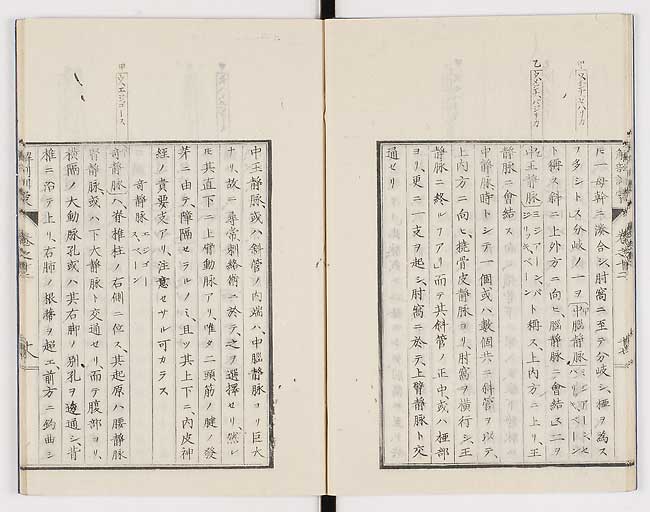 甲
乙
モ一母幹ニ湊合シ肘窩ニ至テ分岐シ極ヲ為ス
ヲ多シトス分岐ノ一ヲ中脳静脉
ト稱ス斜ニ上外方ニ向ヒ脳静脉ニ會結ス二ヲ
中王静脉ト稱ス、上内方ニ上リ、王
静脉ニ會結ス
中静脉時トシテ一個或ハ數個共ニ斜管ヲ以テ、
上内方ニ向ヒ、撓骨皮静脉ヨリ肘窩ヲ横行シ王
静脉ニ終ルヿアリ而テ其斜管ノ正中或ハ極部
ヨリ、更ニ一支ヲ起シ肘窩ニ於テ、上臂静脉ト交
通セリ
甲
中王静脉或ハ斜管ノ内端ハ、中脳静脉ヨリ巨大
ナリ、故ニ尋常刺絡術ニ於テ、之ヲ選擇セリ、然レ
モ其直下ニ上臂動脉アリ、唯タ二頭筋ノ腱ノ發
第ニ由テ、障隔セラルノミ、且ツ其上下ニ、内皮神
經ノ貴要支アリ、注意セサル可カラス
奇静脉
奇静脉ハ、脊椎柱ノ右側ニ位ス、其起原ハ腰静脉
腎静脉、或ハ下大静脉ト交通セリ、而テ腹部ヨリ、
横隔ノ大動脉孔或ハ其右脚ノ別孔ヲ遶通シ、背
椎ニ沿テ上リ、右肺ノ根蒂ヲ超エ前方ニ鈎曲シ